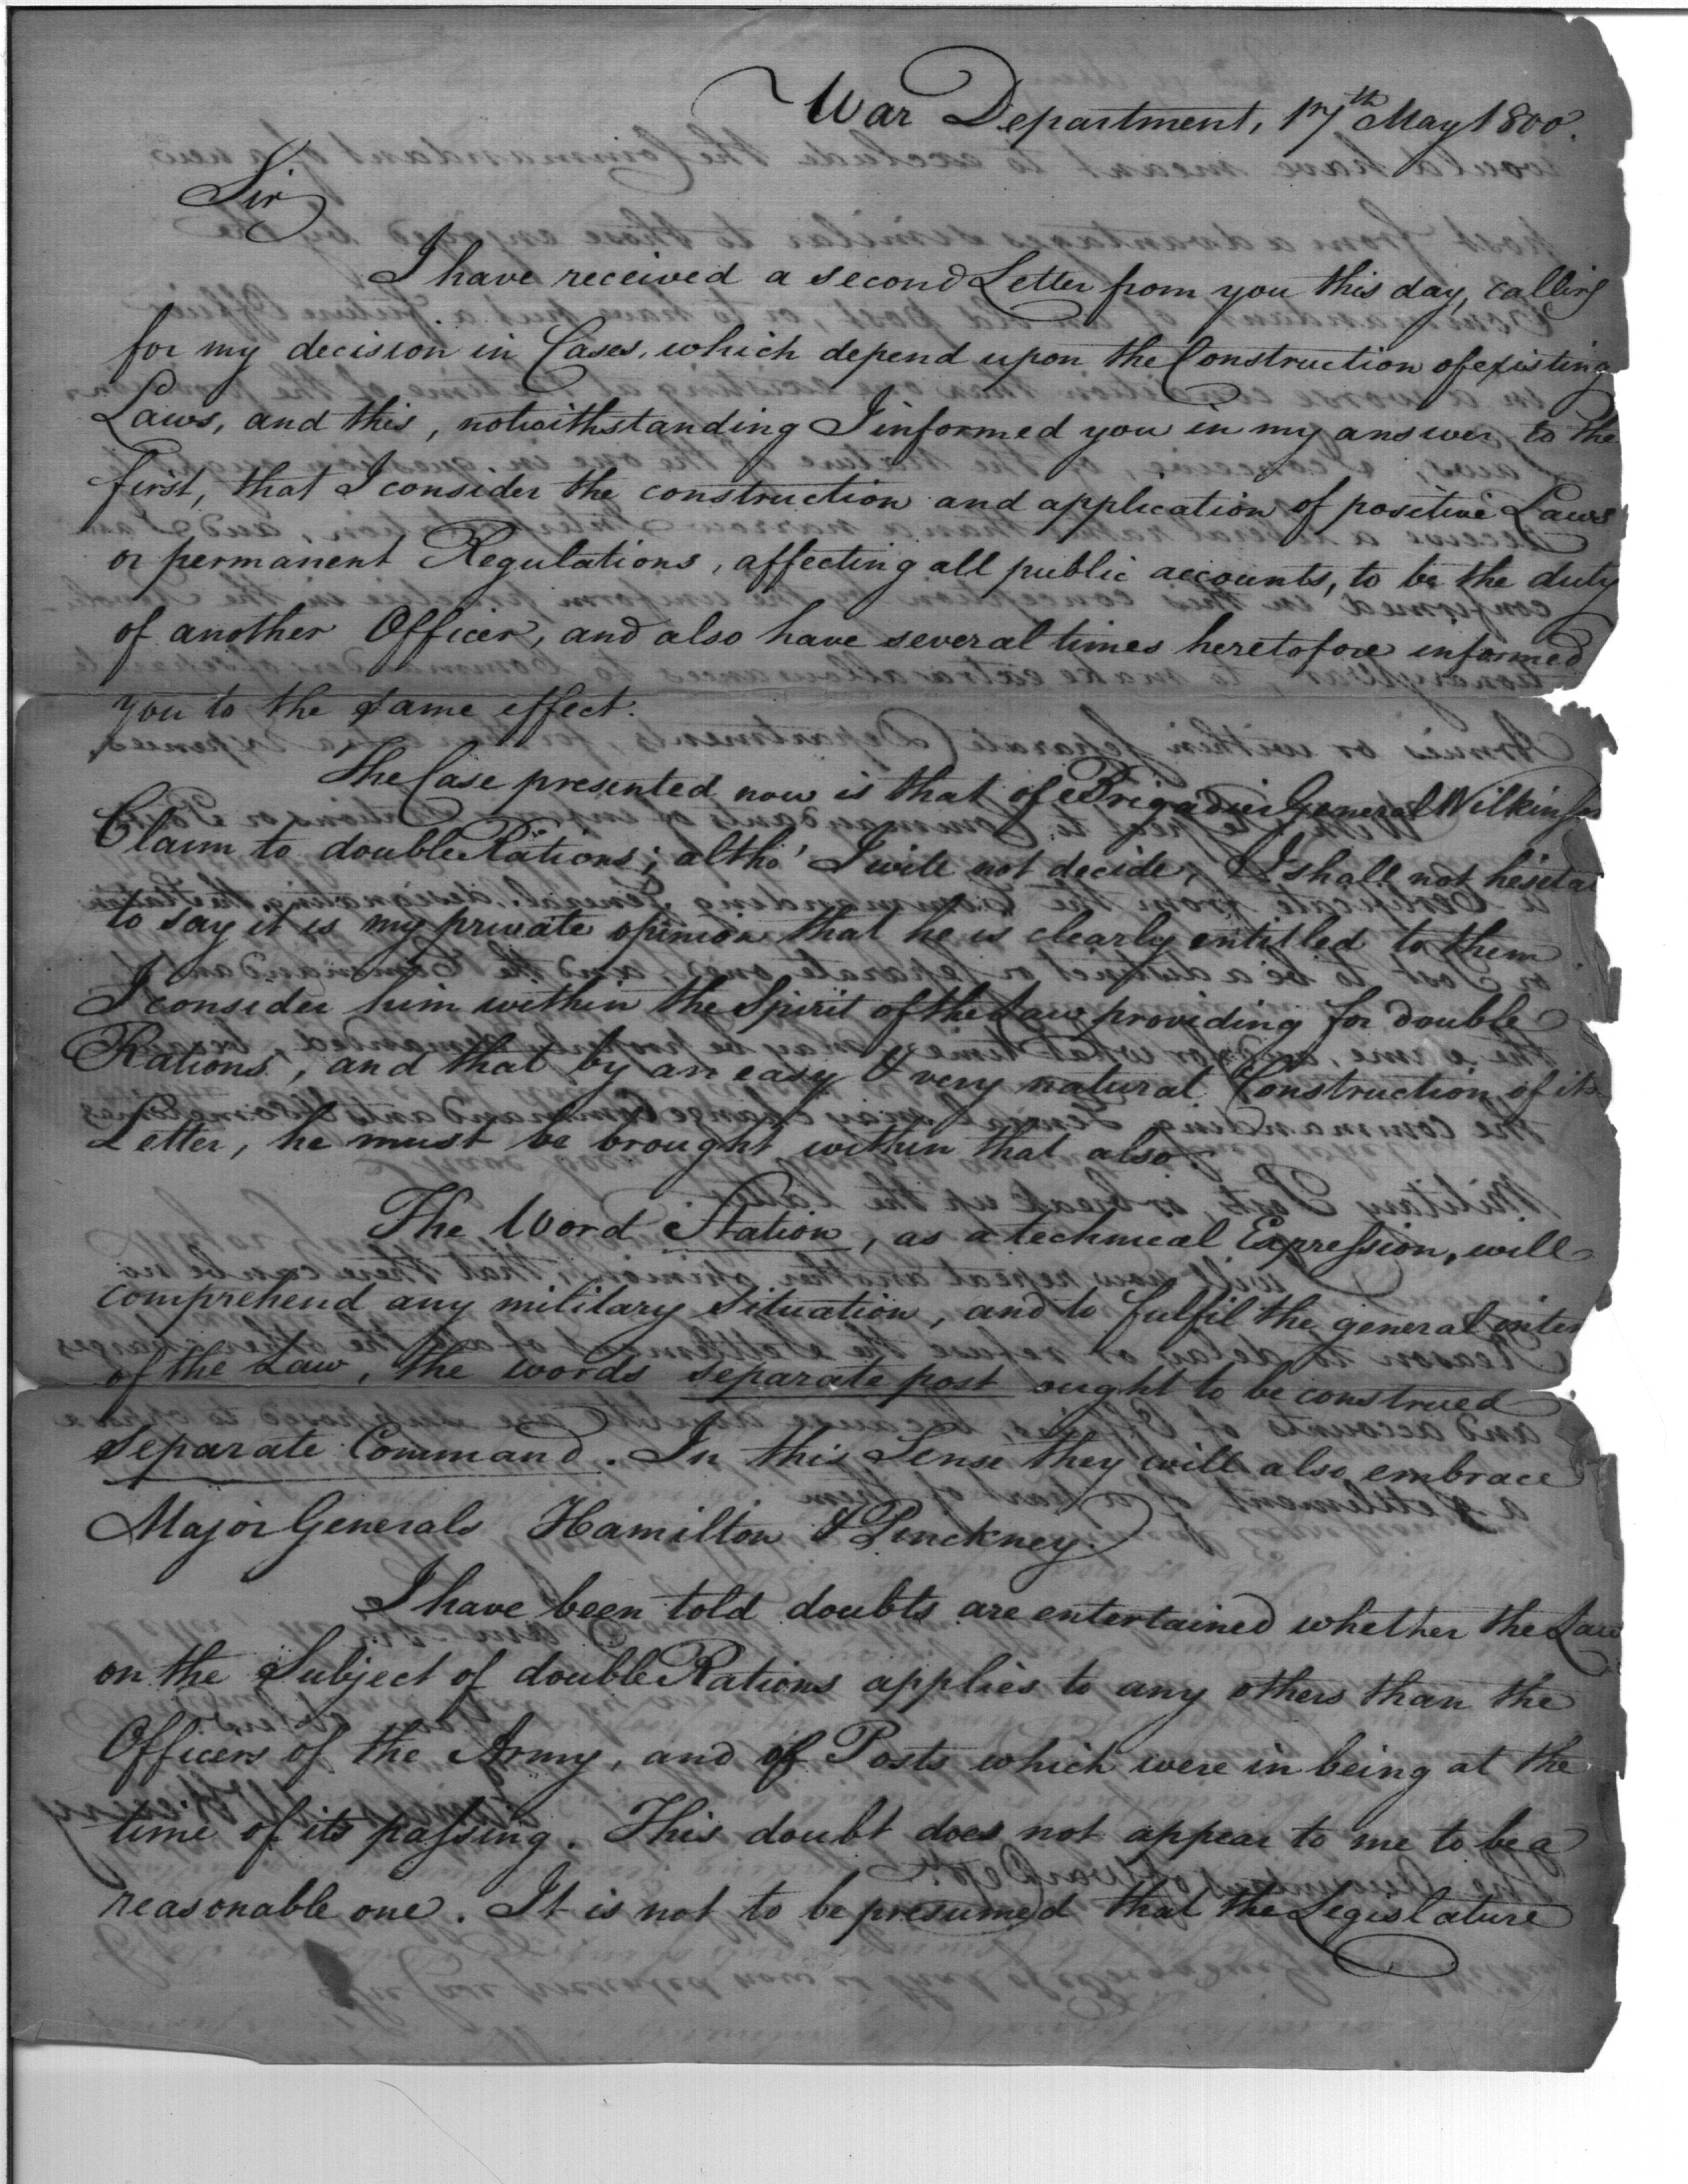 War Department, 17th May 1800.
Sir
I have received a second Letter from you this day, calling
for my decision in Cases, which depend upon the Construction of existing
Laws, and this, notwithstanding I informed you in my answer to the
first, that I consider the construction and application of positive Laws
or permanent Regulations, affecting all public accounts, to be the duty
of another Officer, and also have several times heretofore informed
you to the same effect.
The Case presented now is that of Brigadier General Wilkinsos
Claim to double Rations; altho' I will not decide, I shall not hesitat
to say it is my private opinion that he is clearly entitled to them.
I consider him within the Spirit of the Law providing for double
Rations, and that by an easy & very natural Construction of its
Letter, he must be brought within that also.
The Word Station, as a technical Expression, will
comprehend any military situation, and to fulfil the general inten
of the Law, the words separate post ought to be construed
separate Command. In this Sense they will also embrace
Major Generals Hamilton & Pinckney.
I have been told doubts are entertained whether the Law
on the Subject of double Rations applies to any others than the
Officers of the Army, and of Posts which were in being at the
time of its passing. This doubt does not appear to me to be a
reasonable one. It is not to be presumed that the Legislature